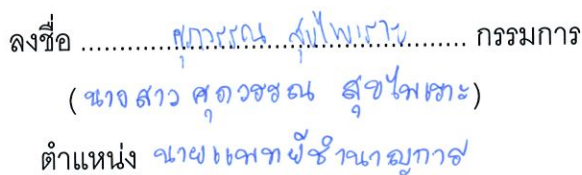 ลงชื่อ ........ศุภวรรณ สุขไพเราะ........ กรรมการ
(นางสาวศุภวรรณ สุขไพเราะ)
ตำแหน่ง นายแพทย์ชำนาญการ